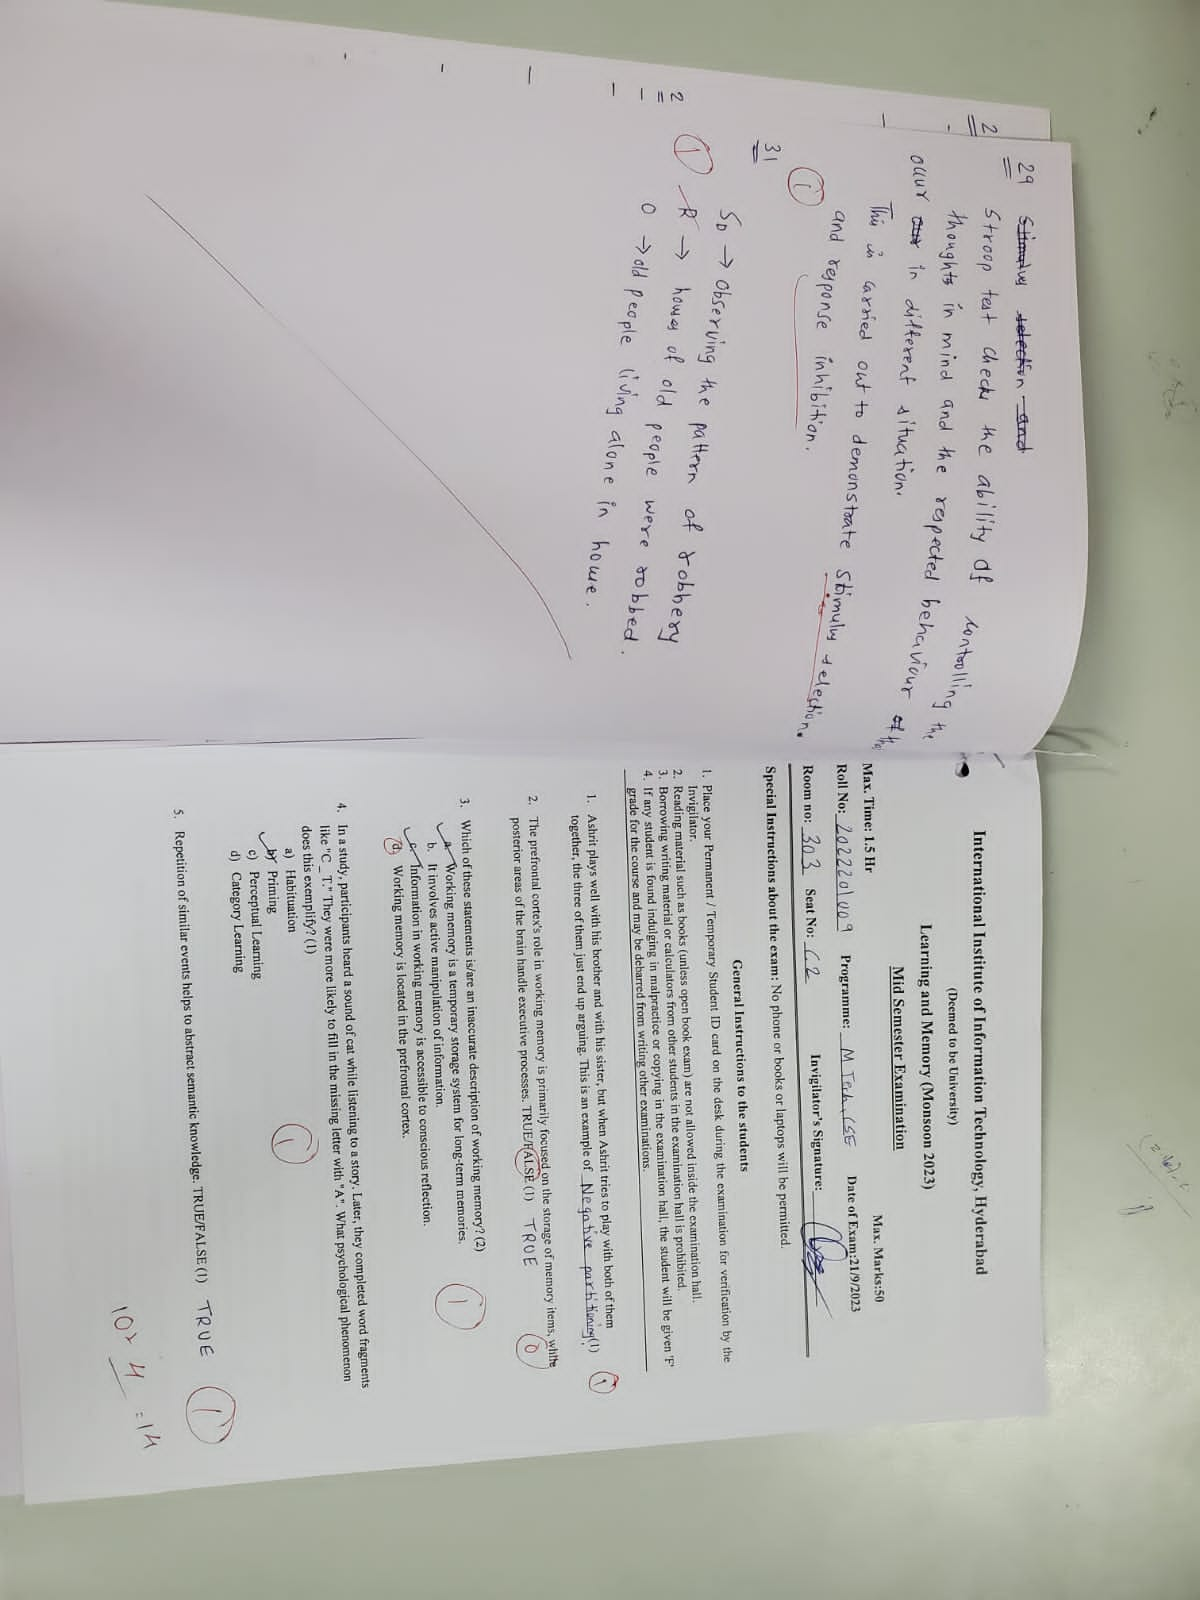 29 Stimulus selection and
Stroop test checks the ability of controlling the
thoughts in mind and the respected behaviour of
occur in different situation.
This is carried out to demonstrate stimulus selection.
and response inhibition.
1
31
SD → observing the pattern of robbery
1 R → houses of old people were robbed.
O → old people living alone in house.
2
2
International Institute of Information Technology, Hyderabad
(Deemed to be University)
Learning and Memory (Monsoon 2023)
Mid Semester Examination
Max. Time: 1.5 Hr Max. Marks:50
Roll No: 2022201009 Programme: M Tech, CSE Date of Exam:21/9/2023
Room no: 303 Seat No: C2 Invigilator's Signature:
Special Instructions about the exam: No phone or books or laptops will be permitted.
General Instructions to the students
1. Place your Permanent / Temporary Student ID card on the desk during the examination for verification by the
Invigilator.
2. Reading material such as books (unless open book exam) are not allowed inside the examination hall.
3. Borrowing writing material or calculators from other students in the examination hall is prohibited.
4. If any student is found indulging in malpractice or copying in the examination hall, the student will be given 'F'
grade for the course and may be debarred from writing other examinations.
1. Ashrit plays well with his brother and with his sister, but when Ashrit tries to play with both of them
together, the three of them just end up arguing. This is an example of Negative partitioning (1)
1
2. The prefrontal cortex's role in working memory is primarily focused on the storage of memory items, while
posterior areas of the brain handle executive processes. TRUE/FALSE (1) TRUE
0
3. Which of these statements is/are an inaccurate description of working memory? (2)
a. Working memory is a temporary storage system for long-term memories.
b. It involves active manipulation of information.
c. Information in working memory is accessible to conscious reflection.
d. Working memory is located in the prefrontal cortex.
1
4. In a study, participants heard a sound of cat while listening to a story. Later, they completed word fragments
like "C _ T." They were more likely to fill in the missing letter with "A". What psychological phenomenon
does this exemplify? (1)
a) Habituation
b) Priming
c) Perceptual Learning
d) Category Learning
1
5. Repetition of similar events helps to abstract semantic knowledge. TRUE/FALSE (1) TRUE
1
10+4 = 14